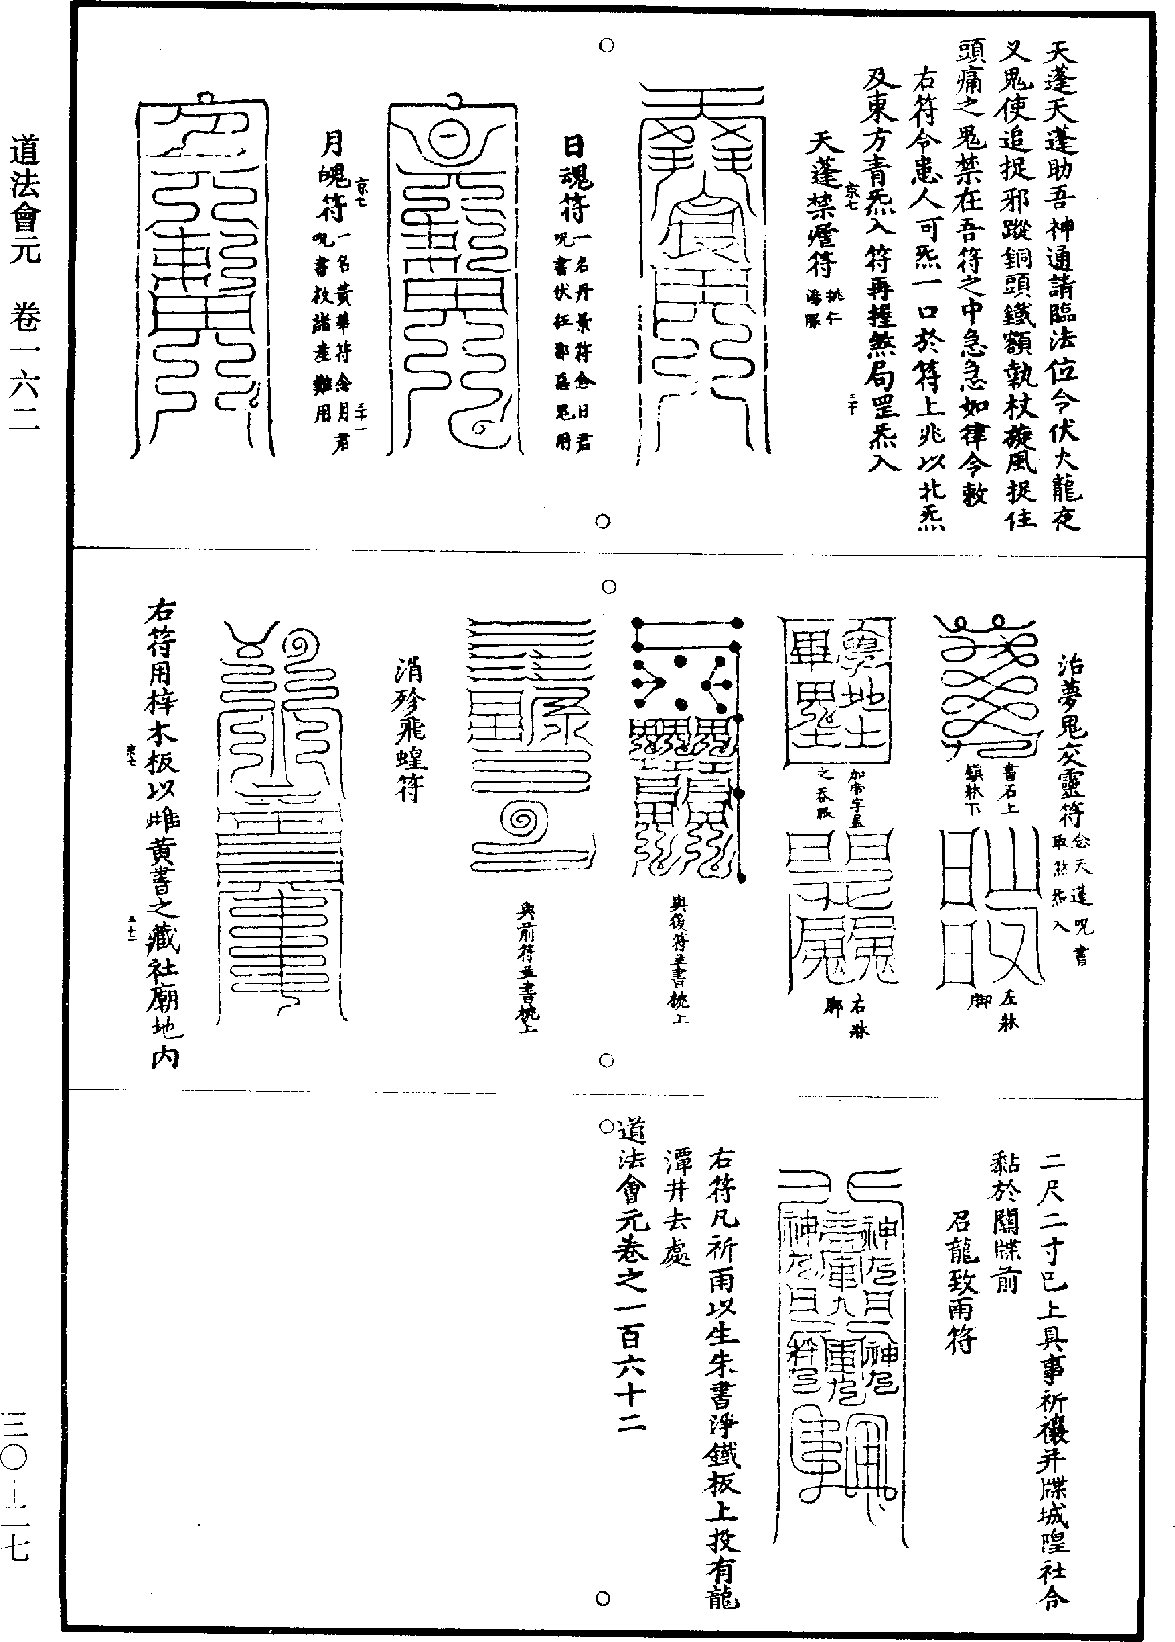 道法會元　卷一六二
天蓬天蓬助吾神通請臨法位今伏火龍夜
叉鬼使追捉邪蹤銅頭鐵額執杖旋風捉住
頭痛之鬼禁在吾符之中急急如律令敕
右符令患人可炁一口於符上兆以北炁
及東方青炁入符再握煞局罡炁入
天蓬禁瘧符
桃仁
湯服
日魂符
一名丹景符念日君
呪書伏狂邪惡鬼用
月魄符
一名黃華符念月君
呪書救諸產難用
治夢鬼交靈符
念天蓬呪書
取煞炁入
書石上
鎮牀下
左牀
腳
之吞服
右牀
腳
與後符並書枕上
與前符並書枕上
消殄飛蝗符
右符用梓木板以雌黃書之藏社廟地內
二尺二寸已上具事祈禳并牒城隍社合
黏於關牒前
召龍致雨符
右符凡祈雨以生朱書淨鐵板上投有龍
潭井去處
道法會元卷之一百六十二
三〇—二七